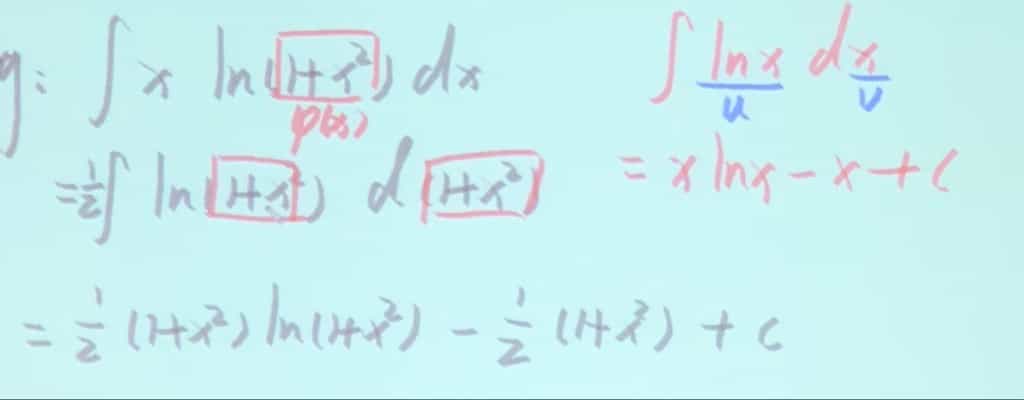 g: ∫ x ln(1+x²) dx
φ(x)
= 1/2 ∫ ln(1+x²) d(1+x²)
= 1/2 (1+x²) ln(1+x²) - 1/2 (1+x²) + C
∫ ln x d x
u v
= x ln x - x + C